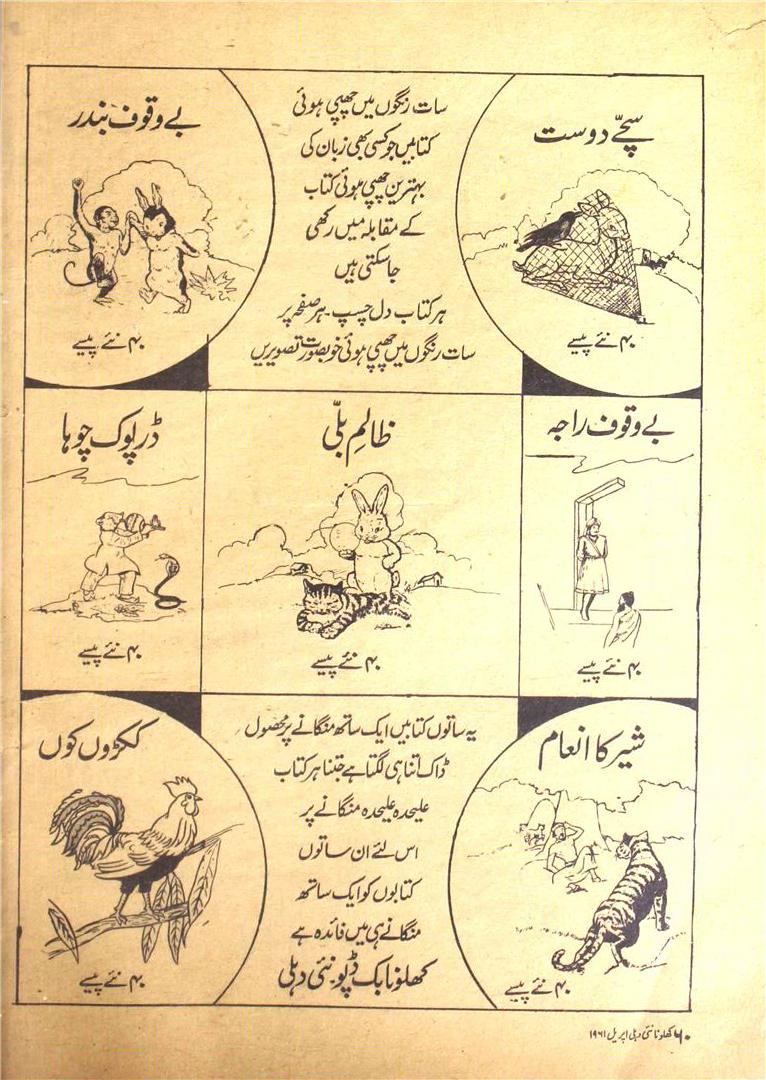 سچّے دوست
۴۰ نئے پیسے
سات رنگوں میں چھپی ہوئی
کتابیں جو کسی بھی زبان کی
بہترین چھپی ہوئی کتاب
کے مقابلہ میں رکھی
جاسکتی ہیں
ہر کتاب دل چسپ۔ ہر صفحہ پر
سات رنگوں میں چھپی ہوئی خوبصورت تصویریں
بے وقوف بندر
۴۰ نئے پیسے
بے وقوف راجہ
۴۰ نئے پیسے
ظالم بلّی
۴۰ نئے پیسے
ڈرپوک چوہا
۴۰ نئے پیسے
شیر کا انعام
۴۰ نئے پیسے
یہ ساتوں کتابیں ایک ساتھ منگانے پر محصول
ڈاک اتنا ہی لگتا ہے جتنا ہر کتاب
علیحدہ علیحدہ منگانے پر
اس لئے ان ساتوں
کتابوں کو ایک ساتھ
منگانے ہی میں فائدہ ہے
کھلونا بک ڈپو۔ نئی دہلی
ککڑوں کوں
۴۰ نئے پیسے
کھلونا نئی دہلی اپریل ۱۹۶۱